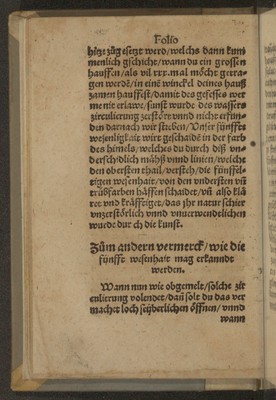 Folio
hitz züg esetzt werd/welchs dann kum
menlich gschicht/wann du ein grossen
hauffen/als vil xxx.mal möcht getra-
gen werdē/in einē winckel deines hauß
zamen hauffest/damit des gefesses wer
me nit erlaw/sunst wurde des wassers
zirculierung zerstört vnnd nicht erfun-
den darnach wir streben/Vnser fünffte
wesenligkait wirt gschaidē in der farb
des himels/welches du durch diß vn-
derschidlich nähß vnnd linien/welche
den obersten thail/versteh/die fünffel-
tigen wesenhait/von den vndersten vñ
trüßfarben häffen schaidet/vñ also klä
ret vnd kräfftiget/das jhr natur schier
vnzerstörlich vnnd vnuerwendelichen
wurde durch die kunst.
Züm andern vermerck/wie die
fünffte wesenhait mag erkanndt
werden.
Wann nun wie obgemelt/solche zir
culierung volendet/dañ solt du das ver
machet loch seyberlichen öffnen/vnnd
wann